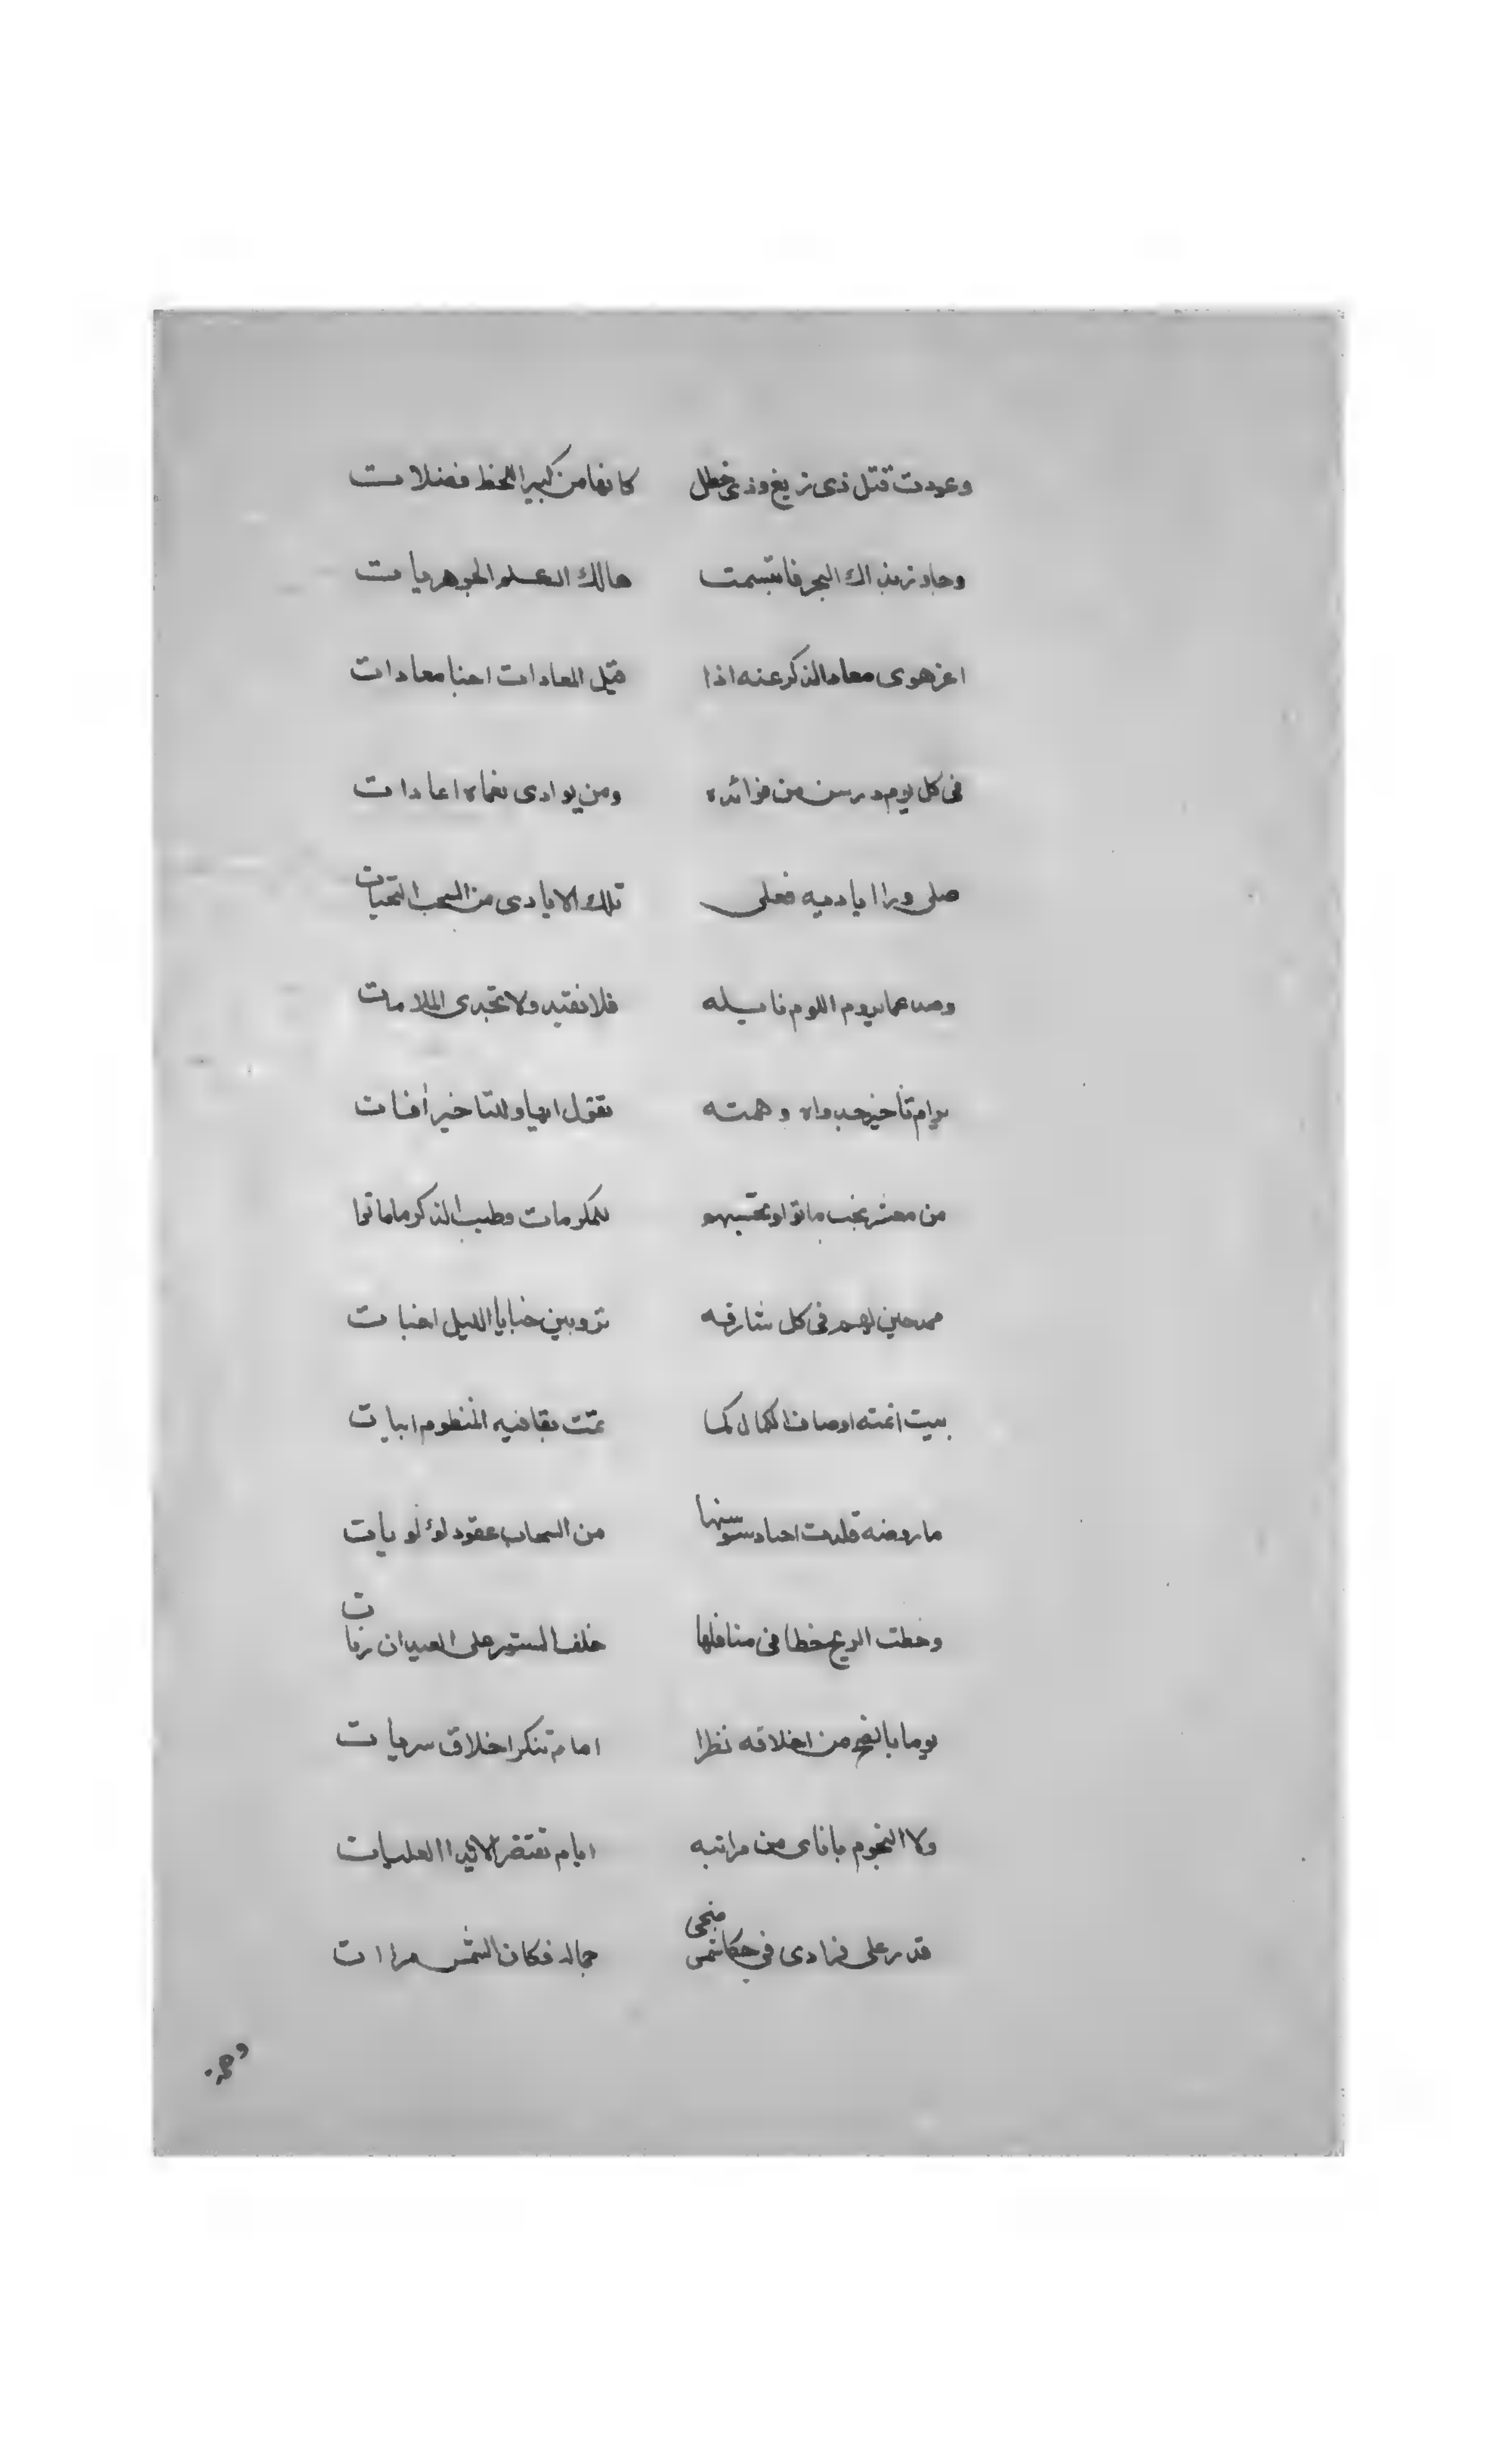 وعودت قتل ذى زيغ وذى خطل كانها من كبير اللحظ فضلات
وجاورتها بذاك البحر فابتسمت هالك العلم الجوهريات
اغر هوى معاد الذكر عنه اذا قيل المعادات احنا معادات
فى كل يوم درس من فوائده ومن يوادى نعماه اعادات
صلى ورا اياديه فعلى تلك الايادى من السحب التحيات
وصد عما يروم اللوم نايله فلا تفيد ولا تجدى الملامات
يرام تاخير جدواه وهمته تقول ايها وللتاخير أفات
من معشر نجب ماتوا وتحسبهم للمكرمات وطيب الذكر ما ماتوا
ممدحين لهم فى كل شارقه تر وبين خبايا الليل اخبات
بيت اتمته اوصاف الكمال كما تمت بقافيه المنظوم ابيات
ما روضه قلدت اجياد سوسنها من السحاب عقود لؤلؤيات
وخطت الريح خطا فى مناهلها خلف الستور على العيدان رنات
يوما بانفح من اخلاقه نظرا امام تنكر اخلاق سريات
ولا النجوم بانأى من مراتبه ايام تقتضر الايدا العليات
قدر على فزادى فى ضحى كالشمس جماله فكان الشمس مرا ات